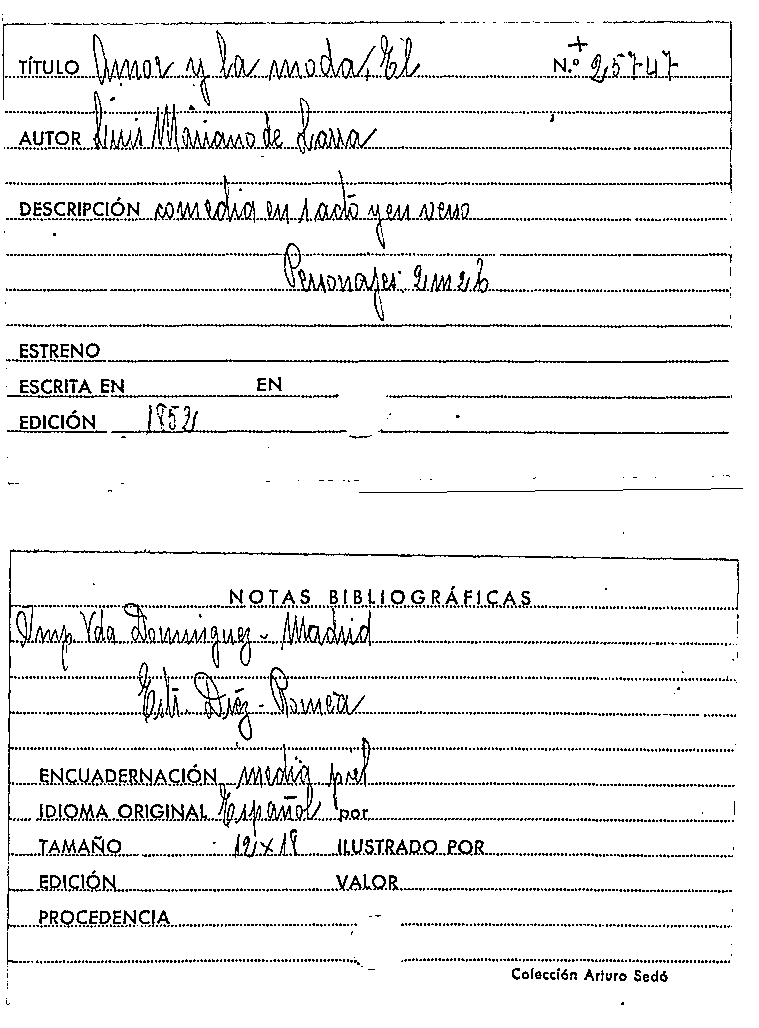 TÍTULO Amor y la moda, El N.º 25747
+
AUTOR Luis Mariano de Larra
DESCRIPCIÓN comedia en 1 acto y en verso
Personajes: 2 m 2 h
ESTRENO
ESCRITA EN EN
EDICIÓN 1852
NOTAS BIBLIOGRÁFICAS
Imp. Vda Dominguez - Madrid
Díez - Romea
ENCUADERNACIÓN media piel
IDIOMA ORIGINAL Español por
TAMAÑO 12 x 18 ILUSTRADO POR
EDICIÓN VALOR
PROCEDENCIA
Colección Arturo Sedó